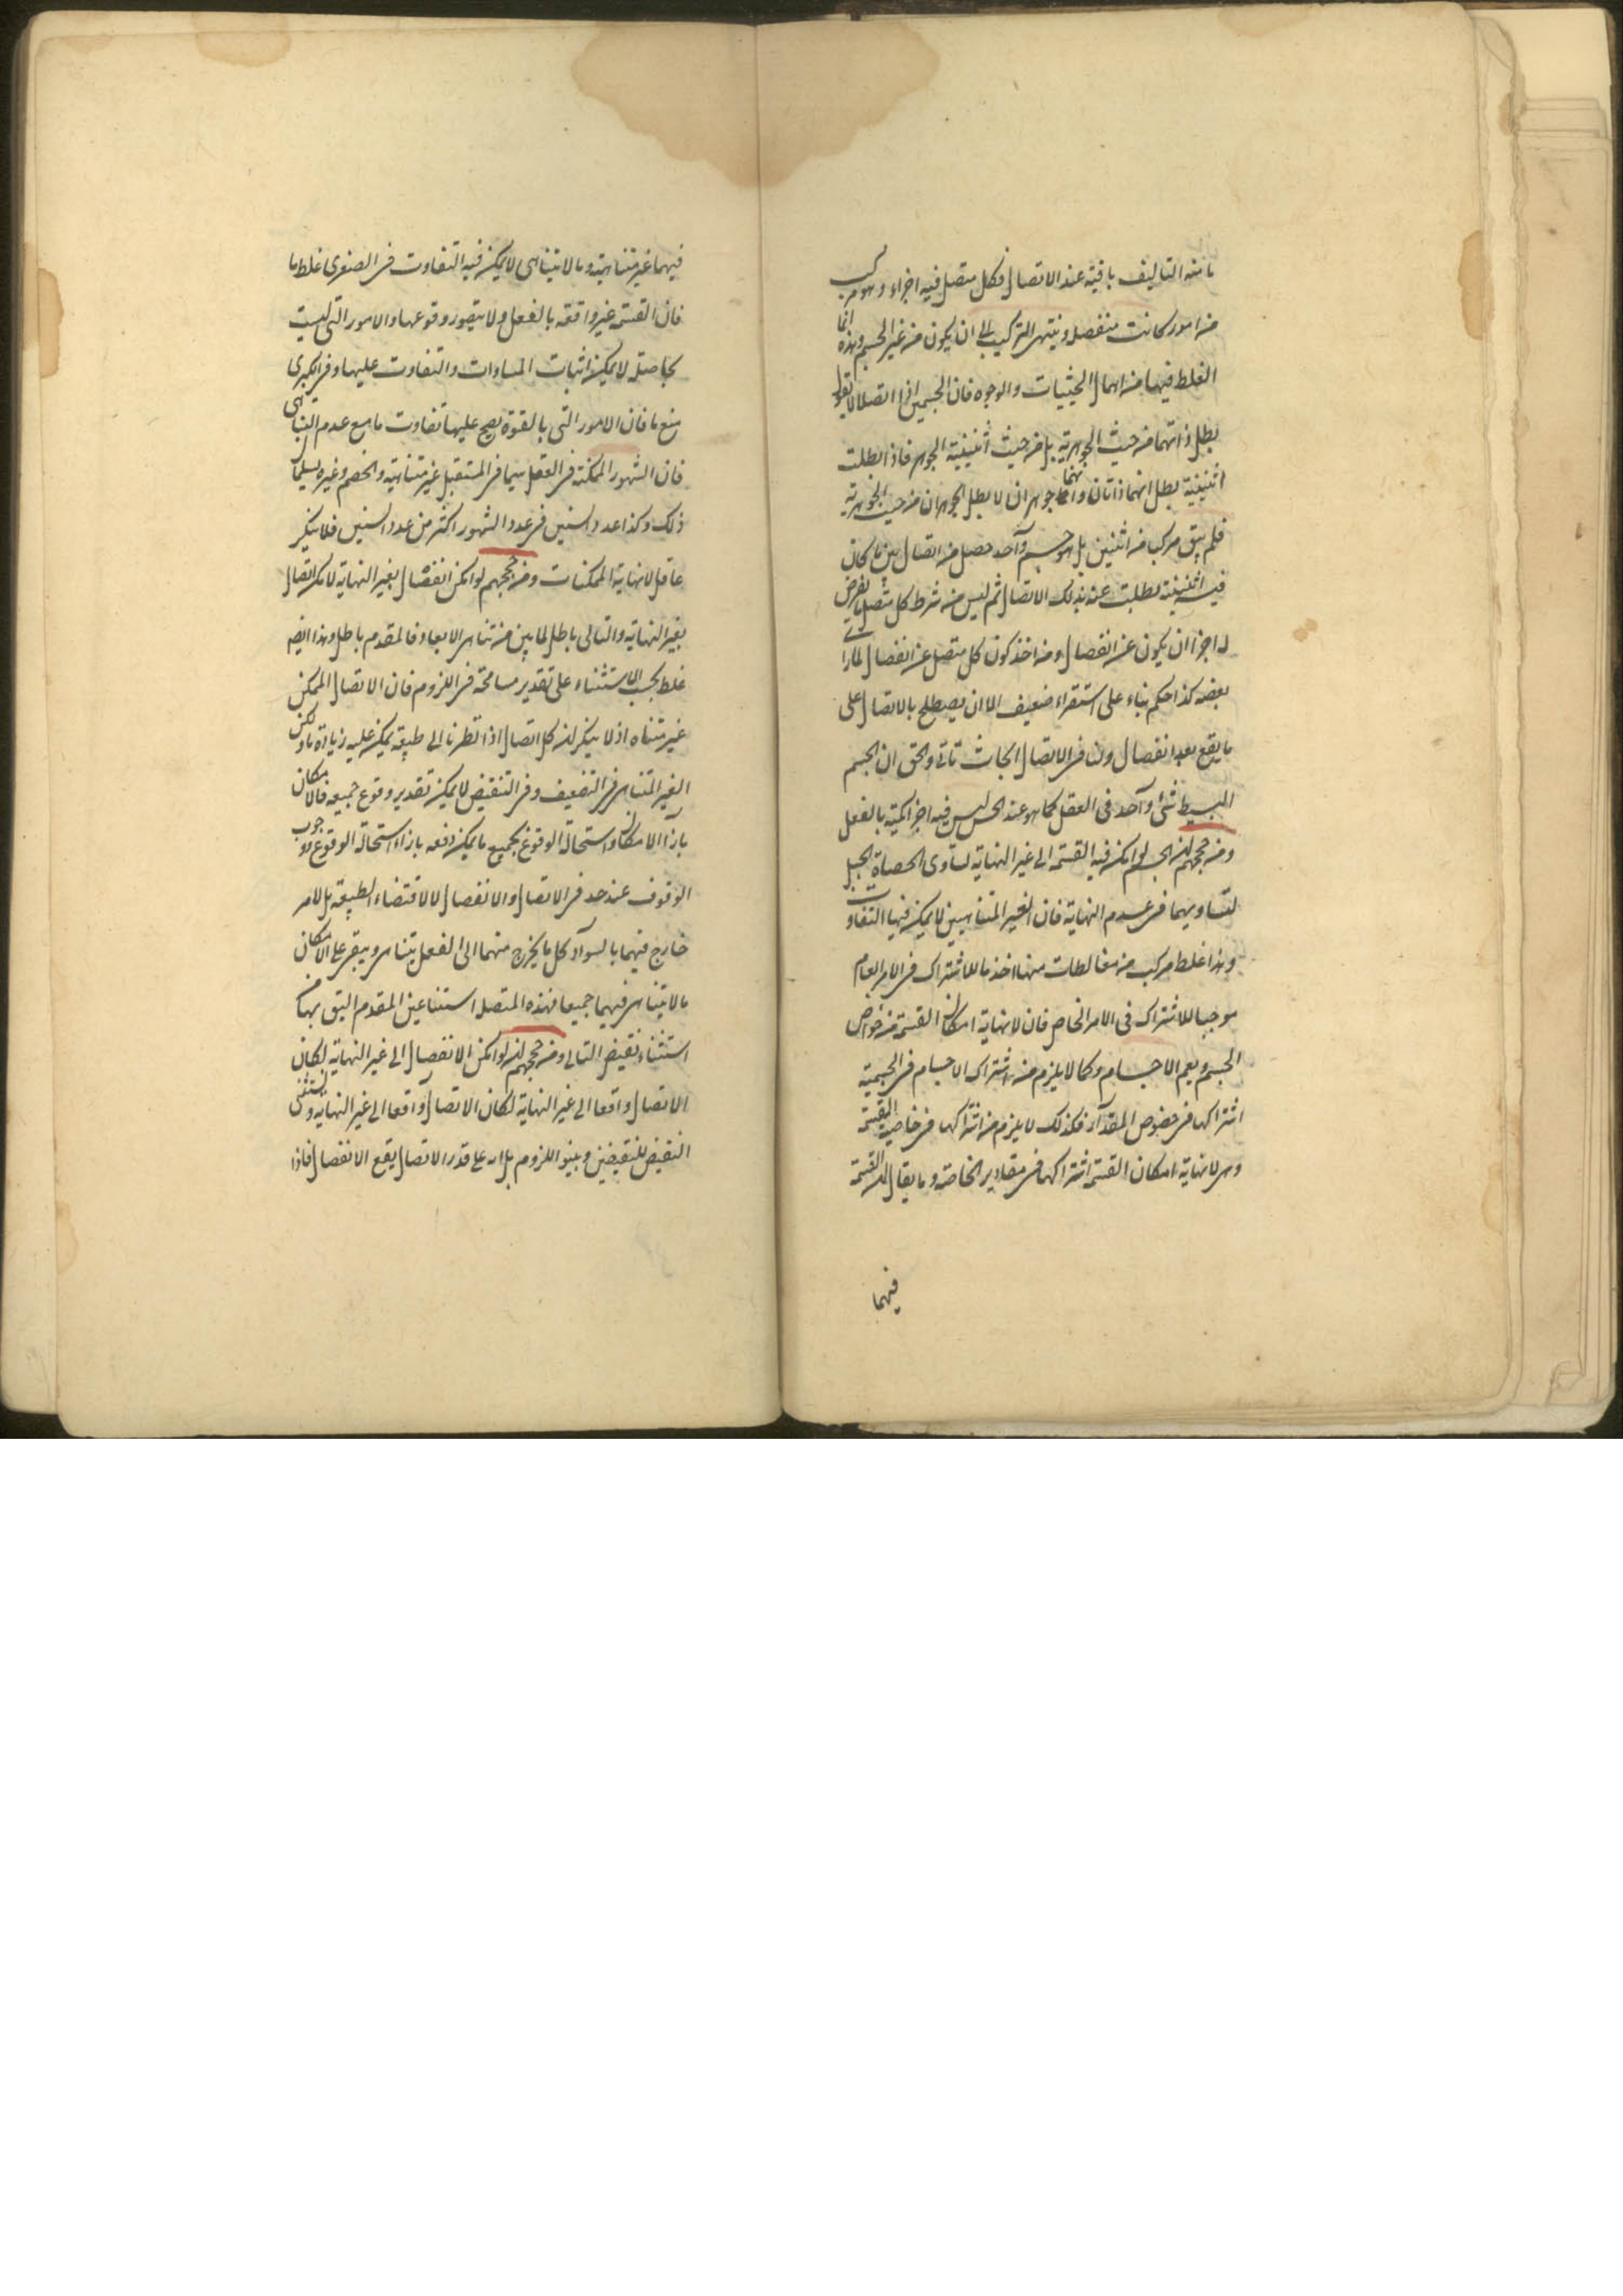 ما منه التاليف باقية عند الاتصال فكل متصل فيه اجزاء وهو مركب
من امور كانت منفصلة وينتهي التركيب الى ان يكون من غير الجسم وهذه انما
الغلط فيها من اهمال الحيثيات والوجوه فان الجسمين اذا اتصلا لا يقول
بطل ذاتهما من حيث الجوهرية بل من حيث اثنينية الجوهر فاذا بطلت
اثنينية بطل انهما ذاتان وانهما جوهران لا بطل الجوهران من حيث الجوهرية
فلم يبق مركب من اثنين بل هو جسم واحد حصل من اتصال بين ما كان
فيه اثنينية بطلت عنه بذلك الاتصال ثم ليس من شرط كل متصل يفرض
له اجزا ان يكون عن انفصال ومن اخذ كون كل متصل عن انفصال لما راى
بعضه كذا حكم بناء على استقراء ضعيف الا ان يصطلح بالاتصال على
ما يقع بعد انفصال ولنا في الاتصال ابحاث تاتي والحق ان الجسم
البسيط شئ واحد في العقل كما هو عند الحس ليس فيه اجزا كمية بالفعل
ومن حججهم ان الجسم لو امكن فيه القسمة الى غير النهاية لساوى الحصاة الجبل
لتساويهما في عدم النهاية فان الغير المتناهيين لا يمكن فيها التفاوت
وهذا غلط مركب من مغالطات منها اخذ ما للاشتراك في الامر العام
موجبا للاشتراك في الامر الخاص فان لا نهاية امكان القسمة من خواص
الجسم ويعم الاجسام وكما لا يلزم من اشتراك الاجسام في الجسمية
اشتراكها في خصوص المقدار فكذلك لا يلزم من اشتراكها في خاصية القسمة
وهي لا نهاية امكان القسمة اشتراكها في مقادير الخاصة وما يقال ان القسمة
فيهما
فيهما غير متناهية وما لا يتناهى لا يمكن فيه التفاوت في الصغرى غلط ما
فان القسمة غير واقعة بالفعل ولا يتصور وقوعها والامور التي ليست
بحاصلة لا يمكن اثبات المساوات والتفاوت عليها وفي الكبرى
منع ما فان الامور التي بالقوة يصح عليها تفاوت ما مع عدم التناهى
فان الشهور الممكنة في العقل سيما في المستقبل غير متناهية والخصم وغيره يسلمان
ذلك وكذا عدد السنين في عدد الشهور اكثر من عدد السنين فلا ينكر
عاقل لا نهاية الممكنات ومن حججهم لو امكن انفصال بغير النهاية لامكن اتصال
بغير النهاية والتالى باطل لما بين من تناهى الابعاد فالمقدم باطل وهذا ايضه
غلط بحسب الاستثناء على تقدير مسامحة في اللزوم فان الاتصال الممكن
غير متناه اذ لا ينكر ان كل اتصال اذا نظرنا الى طبيعة يمكن عليه زيادة ما ولكن
الغير المتناهى في التضعيف وفي التنقيض لا يمكن تقدير وقوع جميعه فالامكان
بازاء الامكان واستحالة الوقوع بجميع ما يمكن دفعه بازاء استحالة الوقوع ووجوب
الوقوف عند حد في الاتصال والانفصال لا لاقتضاء الطبيعة بل لامر
خارج فيهما بالسواء وكل ما يخرج منهما الى الفعل يتناهى ويبقى على الامكان
ما لا يتناهى فيهما جميعا فهذه المتصلة استثنا عين المقدم اليق بها من
استثناء نقيض التالى ومن حججهم ان لو امكن الانفصال الى غير النهاية لكان
الاتصال واقعا الى غير النهاية لكان الاتصال واقعا الى غير النهاية ويستثنى
النقيض للنقيضين ويبنوا اللزوم بل انه على قدر الاتصال يقع الانفصال فاذا